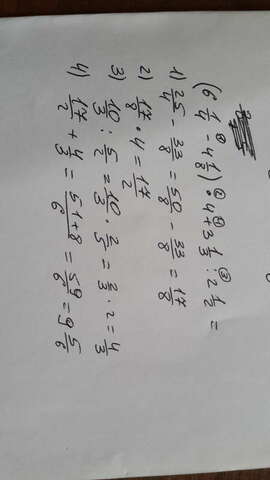 (6 1/4 ①- 4 1/8) ②· 4 ④+ 3 1/3 ③: 2 1/2 =
1) 25/4 - 33/8 = 50/8 - 33/8 = 17/8
2) 17/8 · 4 = 17/2
3) 10/3 : 5/2 = 10/3 · 2/5 = 2/3 · 2 = 4/3
4) 17/2 + 4/3 = 51+8/6 = 59/6 = 9 5/6